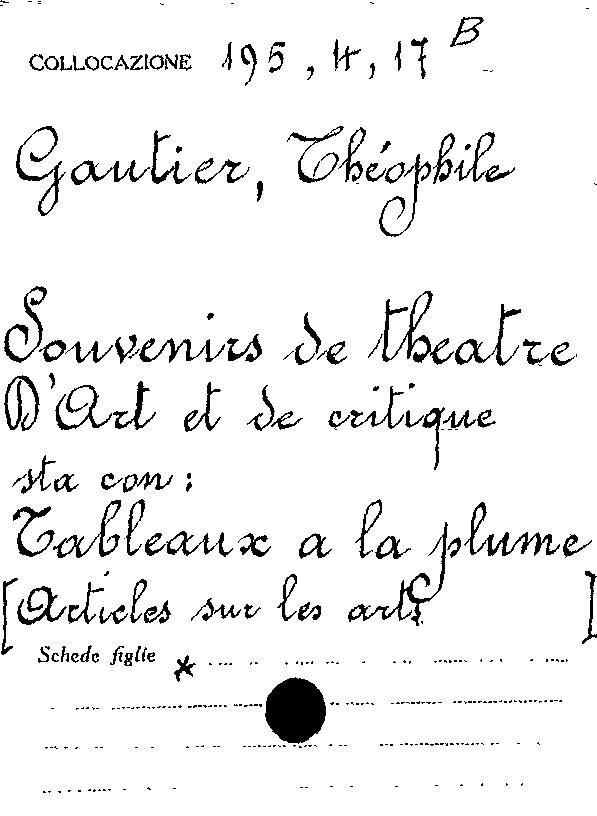 COLLOCAZIONE 195, 4, 17 B
Gautier, Théophile
Souvenirs de theatre
D'Art et de critique
sta con:
Tableaux a la plume
[Articles sur les arts]
Schede figlie *